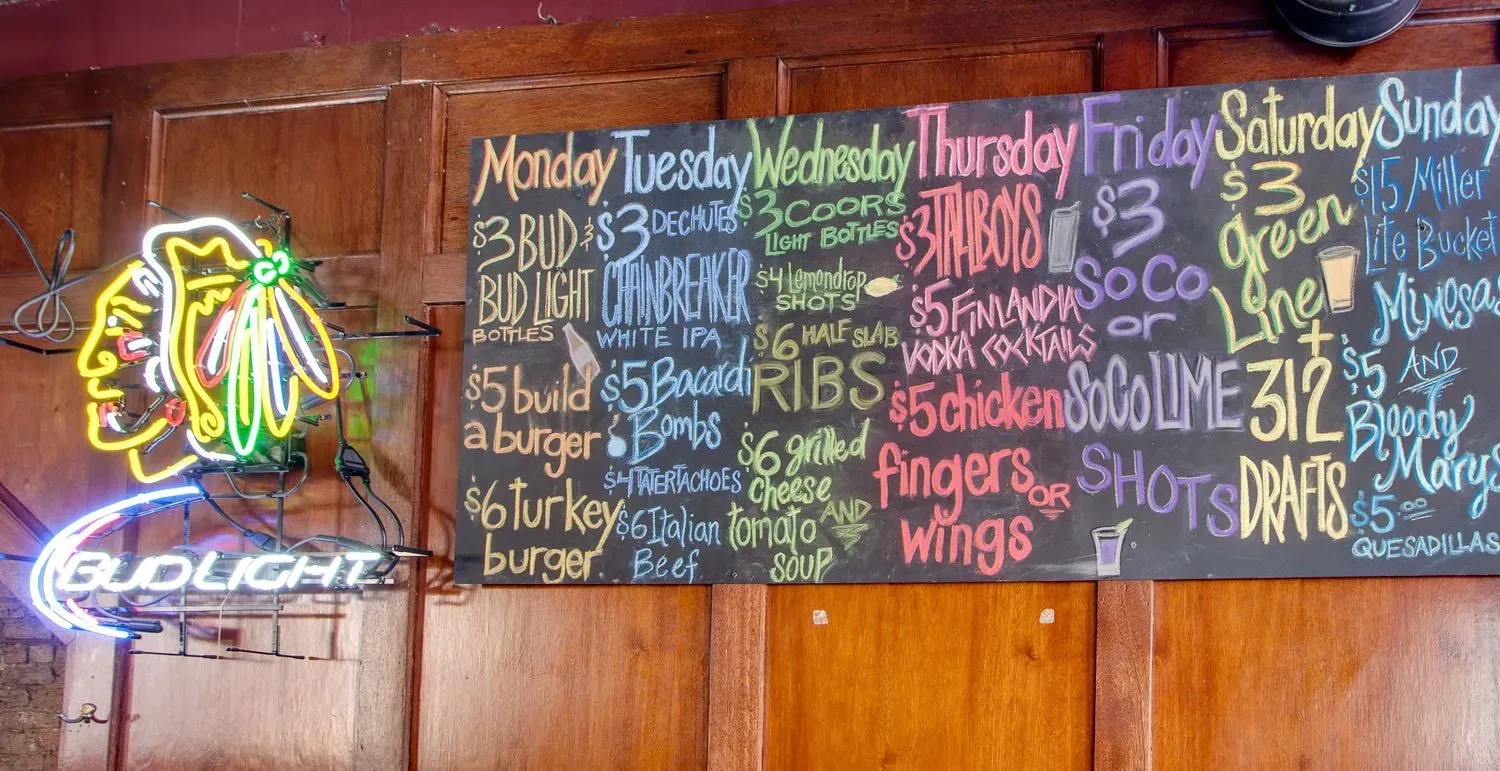 Monday
$3 BUD &
BUD LIGHT
BOTTLES
$5 build
a burger
$6 turkey
burger
Tuesday
$3 DECHUTES
CHAINBREAKER
WHITE IPA
$5 Bacardi
Bombs
$4 TATERTACHOES
$6 Italian
Beef
Wednesday
$3 COORS
LIGHT BOTTLES
$4 Lemondrop
SHOTS
$6 HALF SLAB
RIBS
$6 grilled
cheese
AND
tomato
soup
Thursday
$3 TALLBOYS
$5 FINLANDIA
VODKA COCKTAILS
$5 chicken
fingers OR
wings
Friday
$3
SoCo
or
SoCo LIME
SHOTS
Saturday
$3
green
Line +
312
DRAFTS
Sunday
$15 Miller
Lite Bucket
Mimosas
$5 AND
Bloody
Marys
$5.00
QUESADILLAS
BUD LIGHT